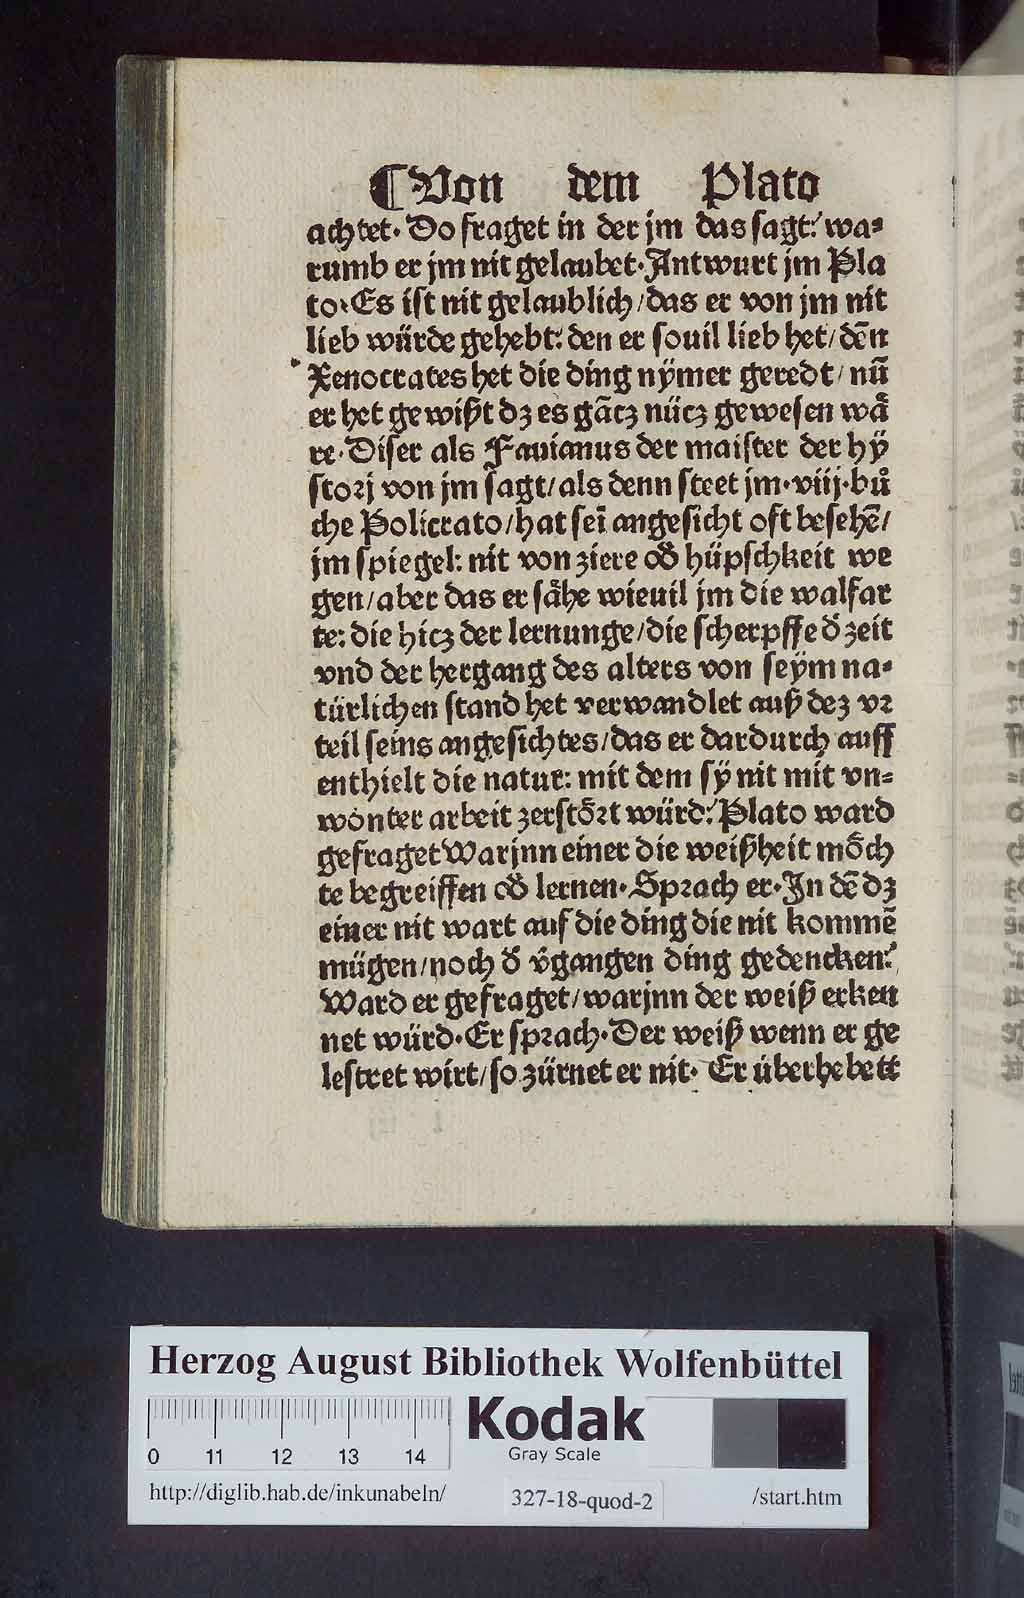 ¶Von dem Plato
achtet· Do fraget in der jm das sagt: wa⸗
rumb er jm nit gelaubet· Antwurt jm Pla
to· Es ist nit gelaublich/ das er von jm nit
lieb würde gehebt: den er souil lieb het/ dēn
Xenocrates het die ding nÿmer geredt/ nū
er het gewißt dz es gācz nücz gewesen wå
re· Diser als Fauianus der maister der hÿ
storj von jm sagt/ als denn steet jm·viij·bů
che Policrato/ hat sei̅ angesicht oft besehē/
jm spiegel: nit von ziere oď hüpschkeit we
gen/ aber das er såhe wieuil jm die walfar
te: die hicz der lernunge/ die scherpffe ď zeit
vnd der hergang des alters von seÿm na⸗
türlichen stand het verwandlet auß dez vr
teil seins angesichtes/ das er dardurch auff
enthielt die natur: mit dem sÿ nit mit vn⸗
wonter arbeit zerstört würd: Plato ward
gefraget Warjnn einer die weißheit möch
te begreiffen oď lernen· Sprach er· In dē dz
einer nit wart auf die ding die nit kommē
mügen/ noch ď v̓gangen ding gedencken:
Ward er gefraget/ warjnn der weiß erken
net würd· Er sprach· Der weiß wenn er ge
lestret wirt/ so zürnet er nit· Er überhebett
Herzog August Bibliothek Wolfenbüttel
0 11 12 13 14
Kodak
Gray Scale
http://diglib.hab.de/inkunabeln/ 327-18-quod-2 /start.htm